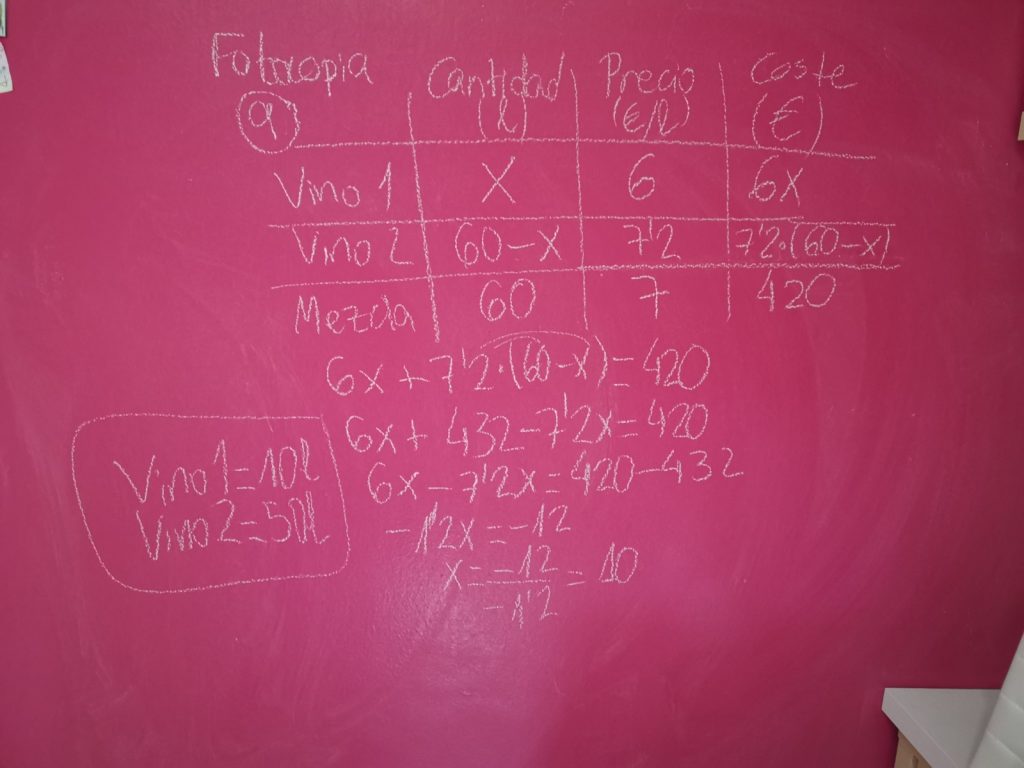 Fotocopia
Cantidad (l) Precio (€/l) Coste (€)
a)
Vino 1 X 6 6x
Vino 2 60-x 7'2 7'2·(60-x)
Mezcla 60 7 420
6x + 7'2·(60-x) = 420
6x + 432 - 7'2x = 420
6x - 7'2x = 420 - 432
-1'2x = -12
x = -12/-1'2 = 10
Vino 1 = 10l
Vino 2 = 50l